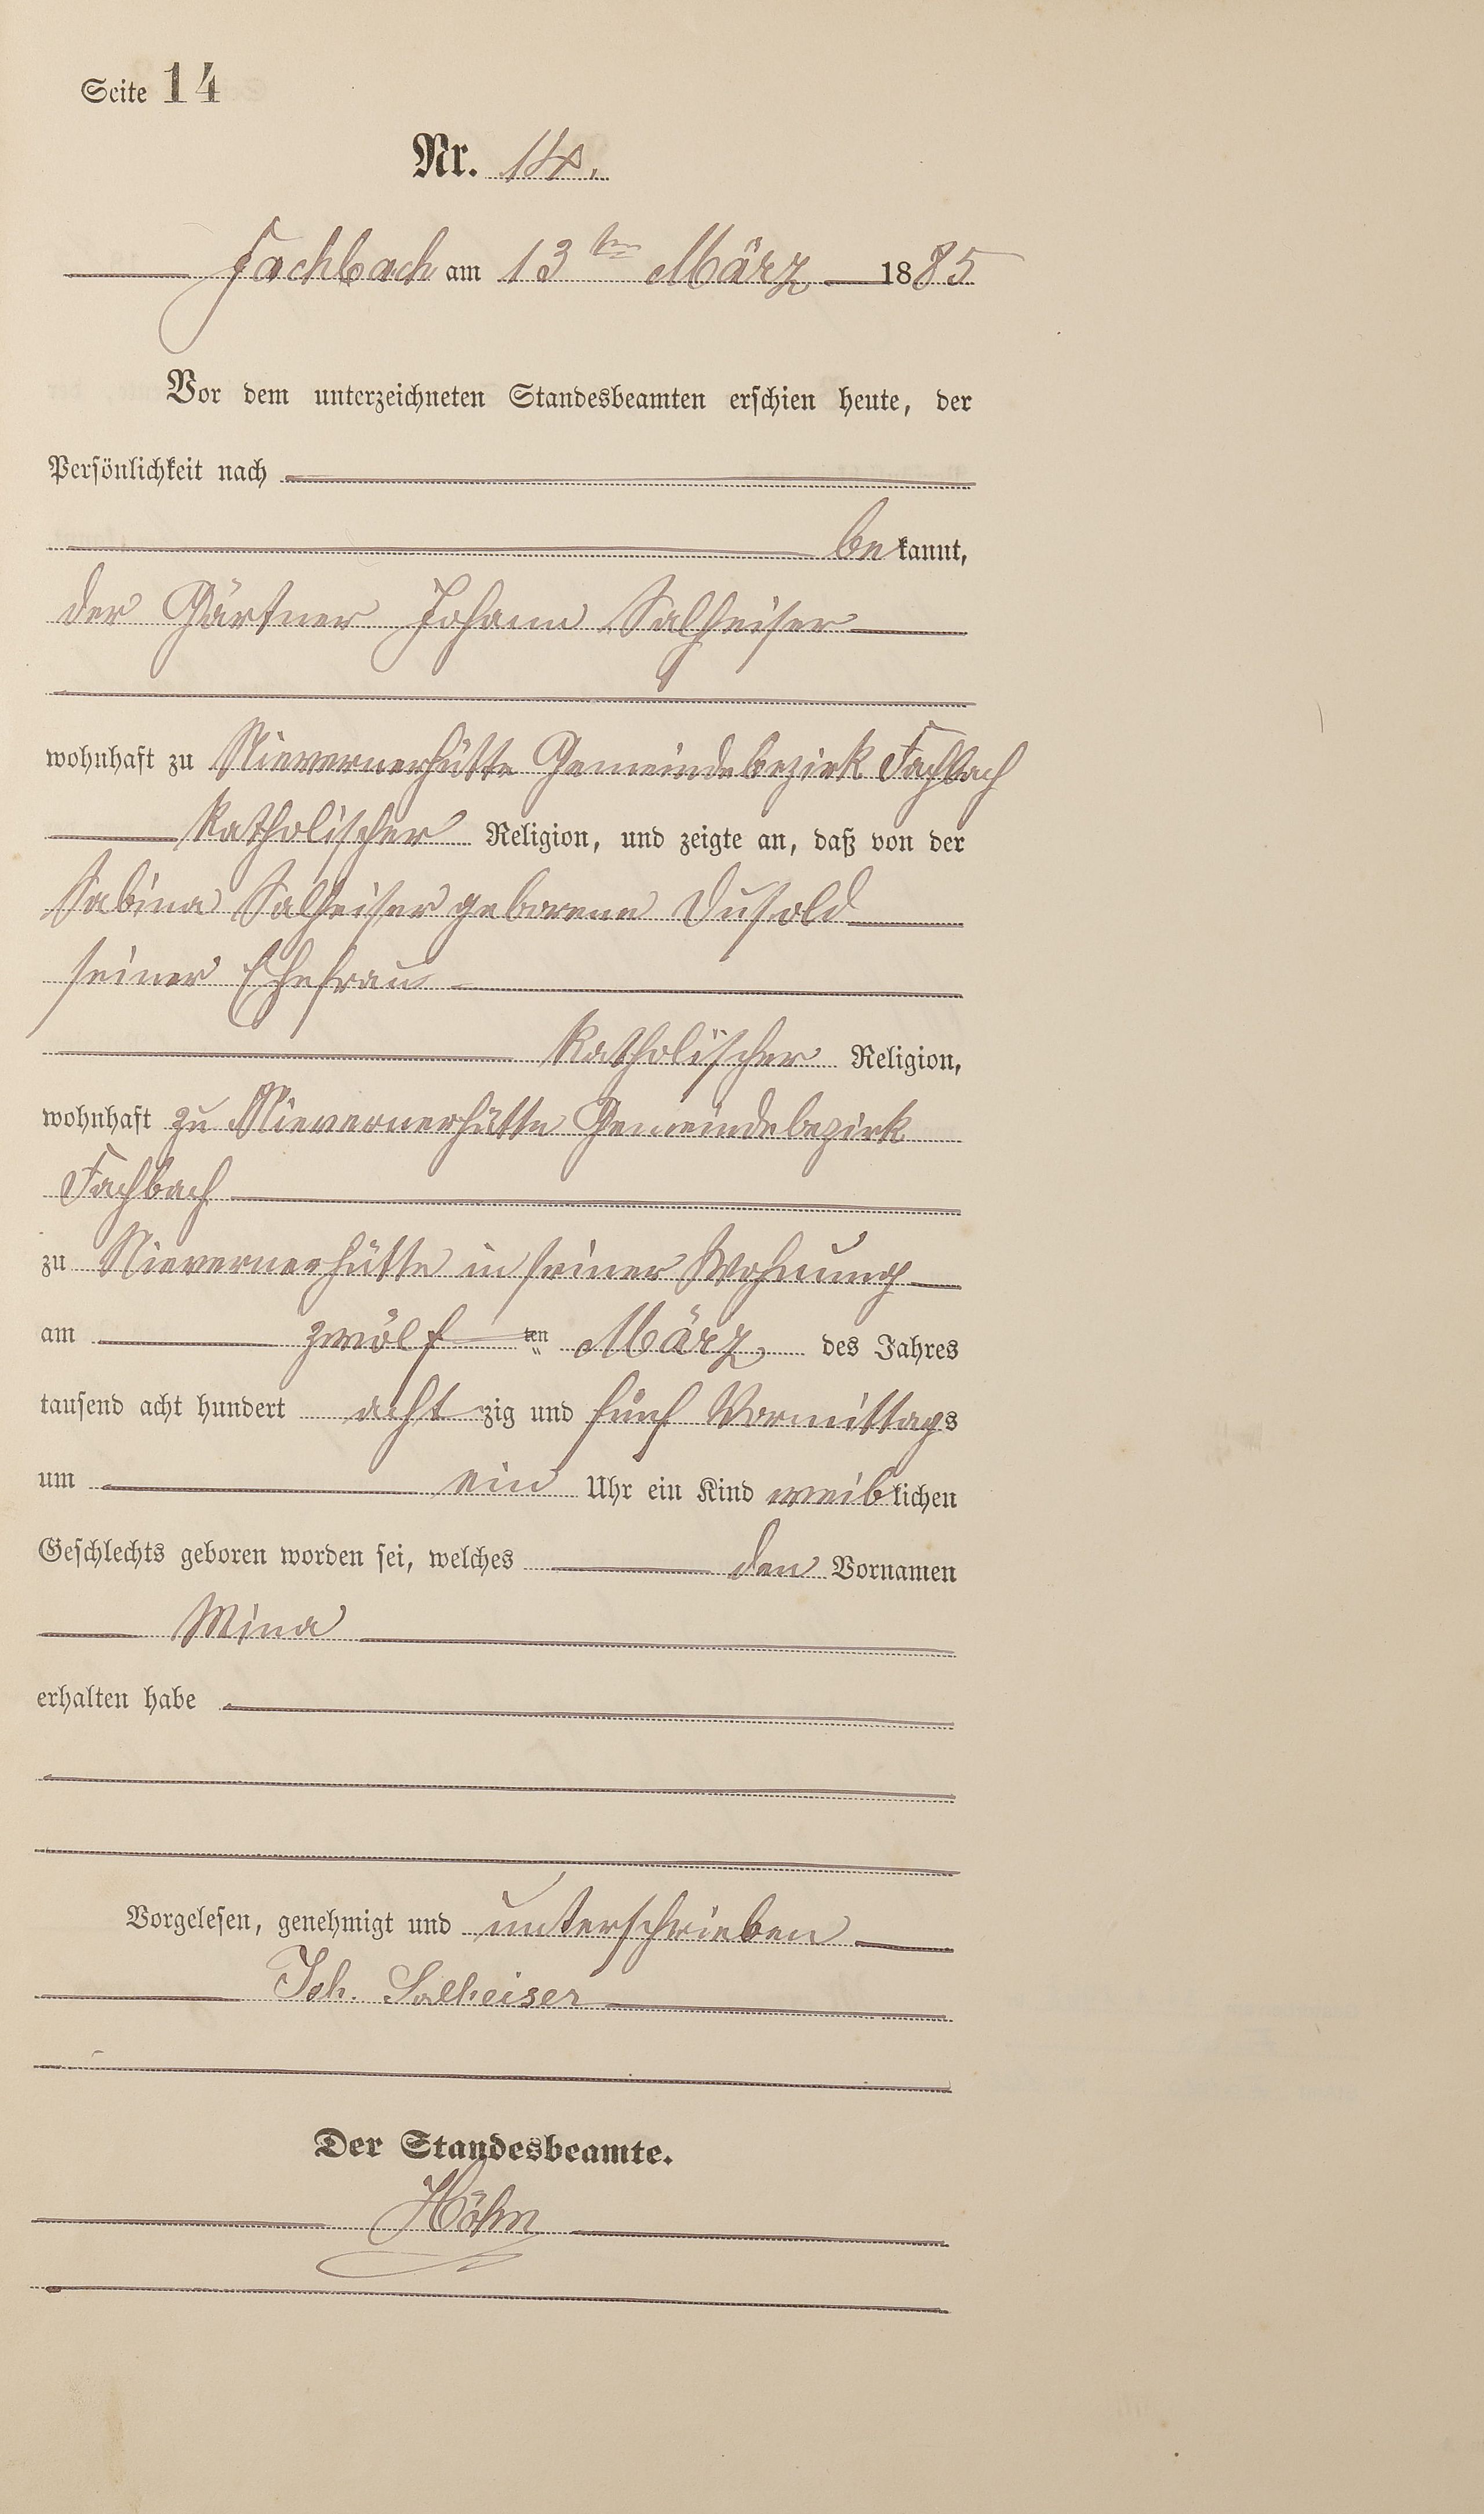 Seite 14
Nr. 14.
Fachbach am 13ten März 1885
Vor dem unterzeichneten Standesbeamten erschien heute, der
Persönlichkeit nach
bekannt,
der Gärtner Johann Salheiser
wohnhaft zu Nievernerhütte Gemeindebezirk Fachbach
katholischer Religion, und zeigte an, daß von der
Sabina Salheiser geborene Dusold
seiner Ehefrau
katholischer Religion,
wohnhaft zu Nievernerhütte Gemeindebezirk
Fachbach
zu Nievernerhütte in seiner Wohnung
am zwölften März des Jahres
tausend acht hundert achtzig und fünf Vormittags
um ein Uhr ein Kind weiblichen
Geschlechts geboren worden sei, welches den Vornamen
Mina
erhalten habe
Vorgelesen, genehmigt und unterschrieben
Joh. Salheiser
Der Standesbeamte.
Höhn